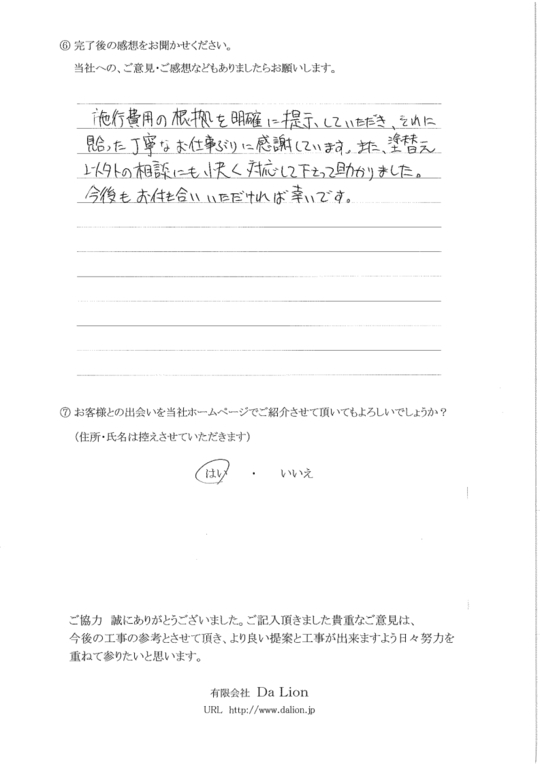 ⑥ 完了後の感想をお聞かせください。
当社への、ご意見・ご感想などもありましたらお願いします。
施行費用の根拠を明確に提示していただき、それに
貽った丁寧なお仕事ぶりに感謝しています。また、塗替え
以外の相談にも快く対応して下さって助かりました。
今後もお付き合いいただければ幸いです。
⑦ お客様との出会いを当社ホームページでご紹介させて頂いてもよろしいでしょうか？
（住所・氏名は控えさせていただきます）
はい ・ いいえ
ご協力 誠にありがとうございました。ご記入頂きました貴重なご意見は、
今後の工事の参考とさせて頂き、より良い提案と工事が出来ますよう日々努力を
重ねて参りたいと思います。
有限会社 Da Lion
URL http://www.dalion.jp